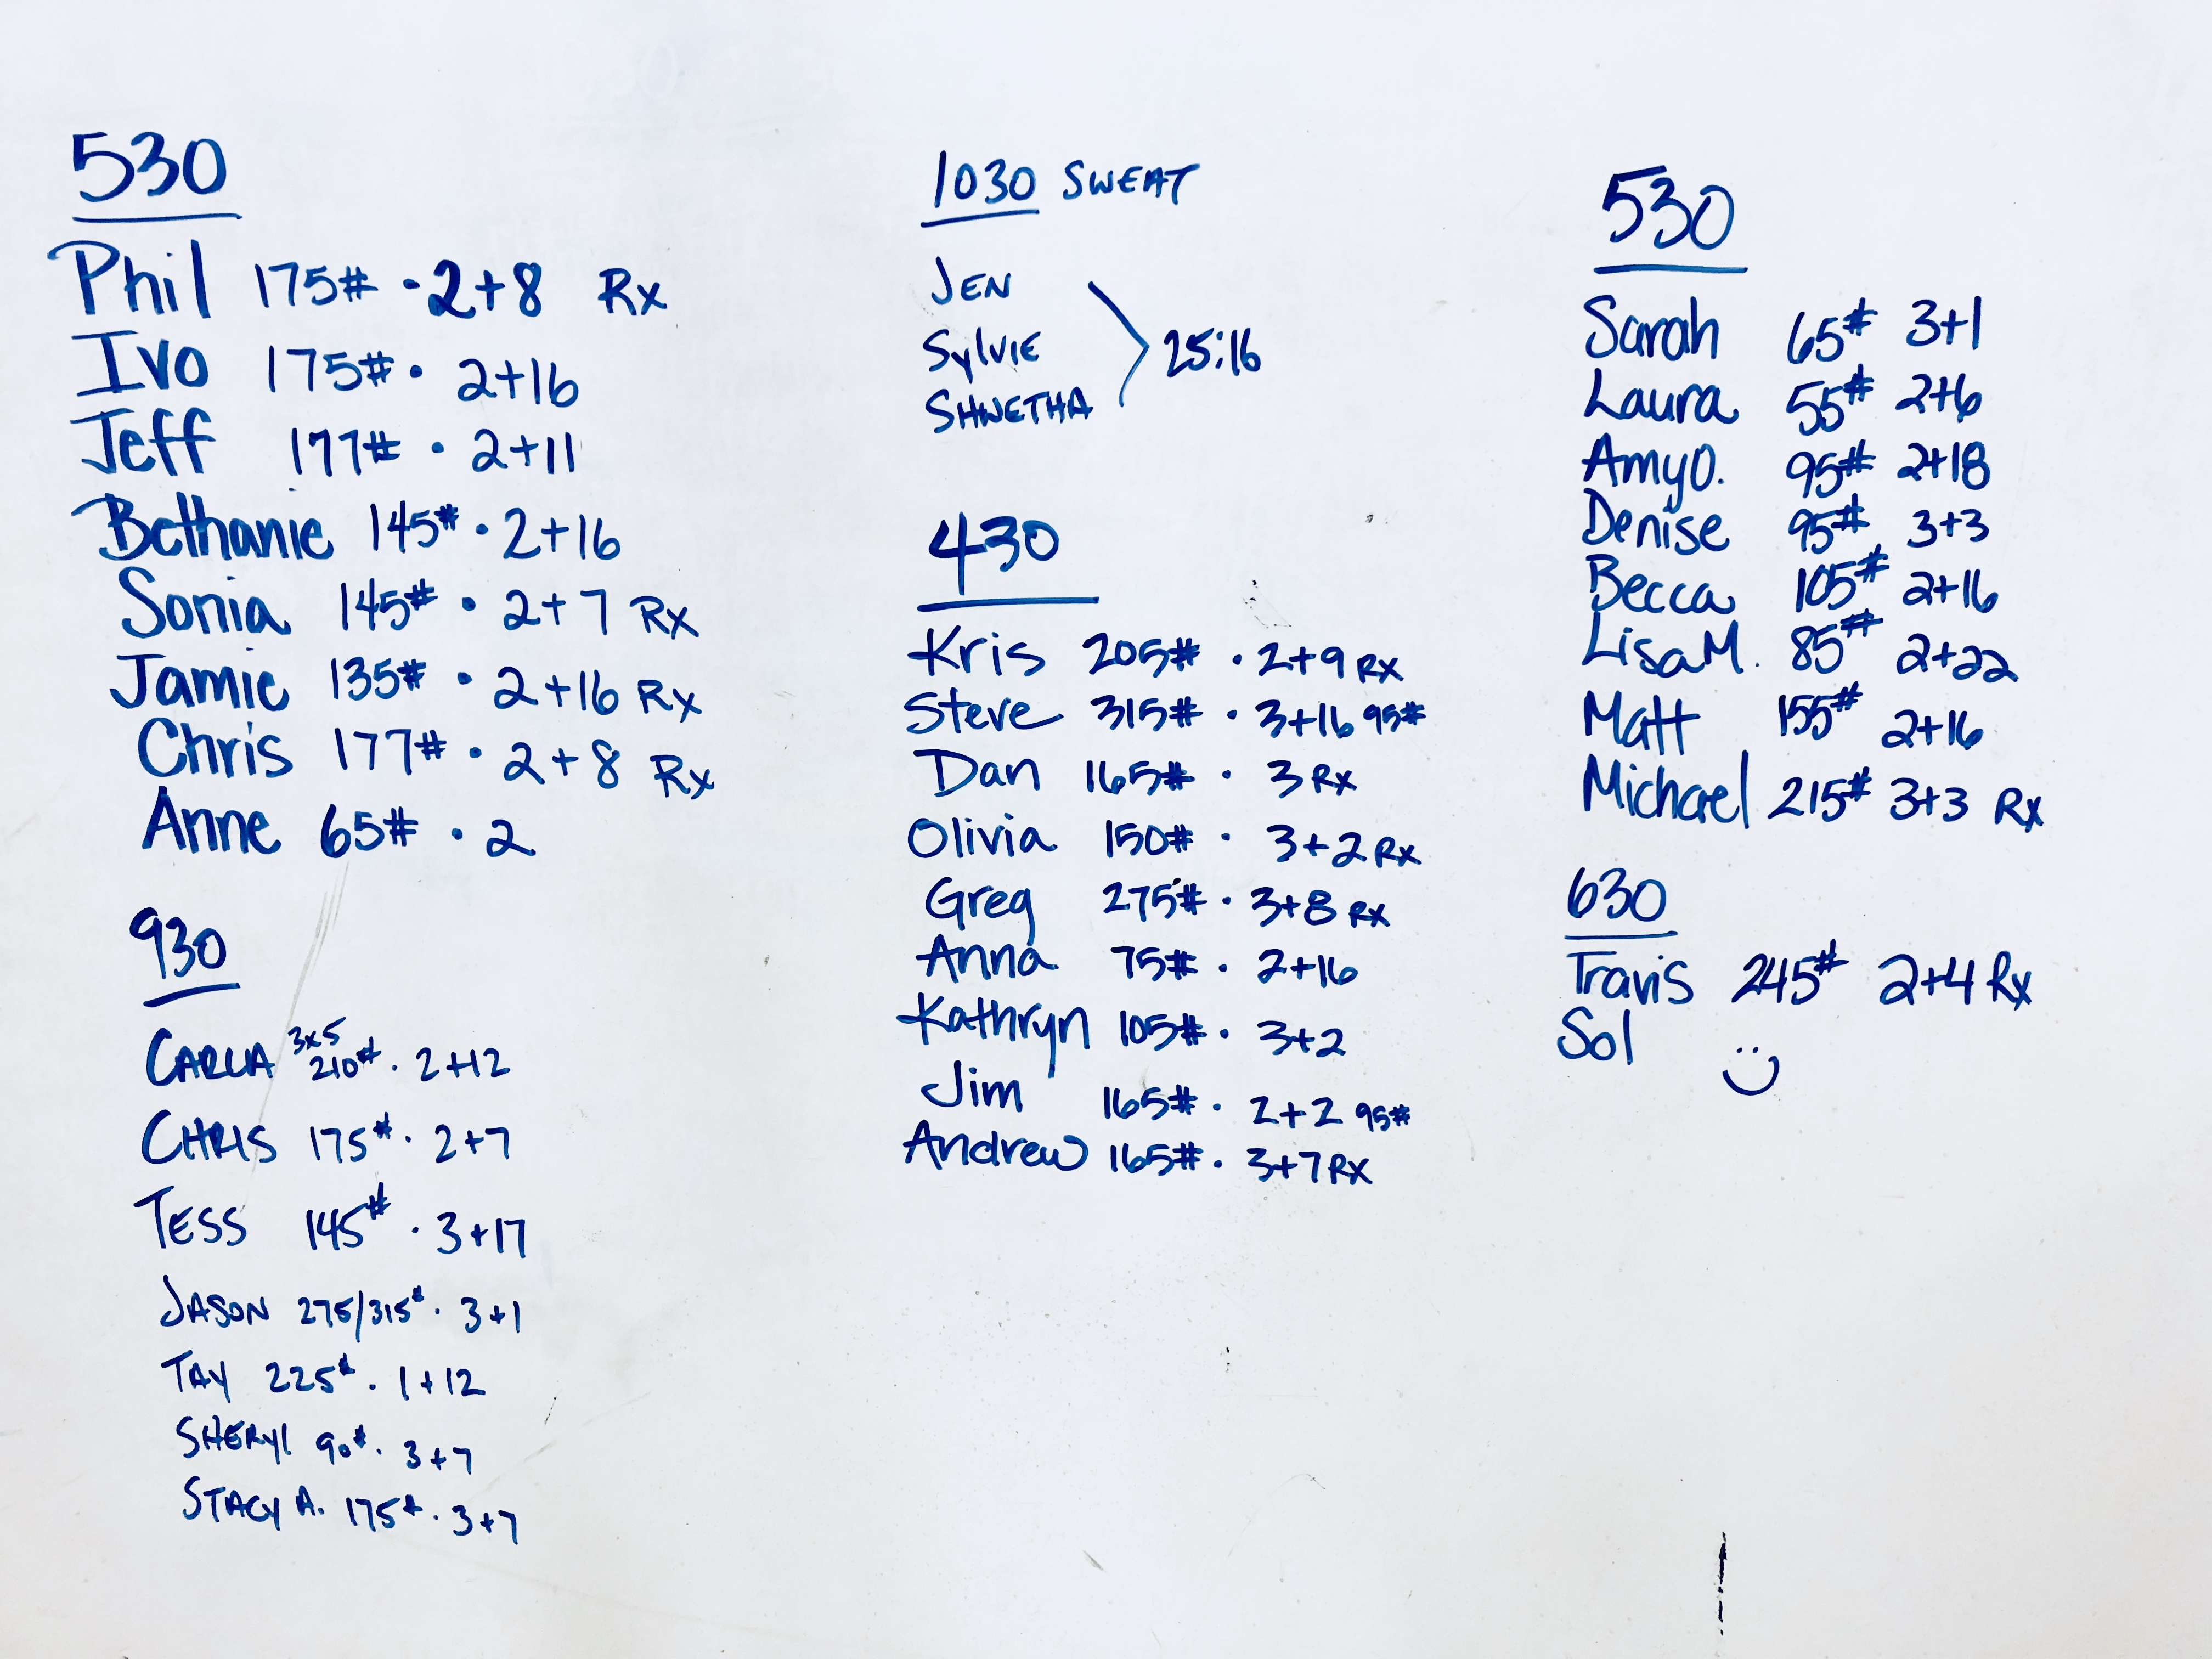 530
Phil 175# · 2+8 Rx
Ivo 175# · 2+16
Jeff 177# · 2+11
Bethanie 145# · 2+16
Sonia 145# · 2+7 Rx
Jamie 135# · 2+16 Rx
Chris 177# · 2+8 Rx
Anne 65# · 2
930
CARLA 3x5 210# · 2+12
CHRIS 175# · 2+7
TESS 145# · 3+17
JASON 275/315# · 3+1
TAY 225# · 1+12
SHERYl 90# · 3+7
STACY A. 175# · 3+7
1030 SWEAT
JEN
SylVIE 25:16
SHWETHA
430
Kris 205# · 2+9 Rx
Steve 315# · 3+16 95#
Dan 165# · 3 Rx
Olivia 150# · 3+2 Rx
Greg 275# · 3+8 Rx
Anna 75# · 2+16
Kathryn 105# · 3+2
Jim 165# · 2+2 95#
Andrew 165# · 3+7 Rx
530
Sarah 65# 3+1
Laura 55# 2+6
Amy O. 95# 2+18
Denise 95# 3+3
Becca 105# 2+16
Lisa M. 85# 2+22
Matt 155# 2+16
Michael 215# 3+3 Rx
630
Travis 245# 2+4 Rx
Sol